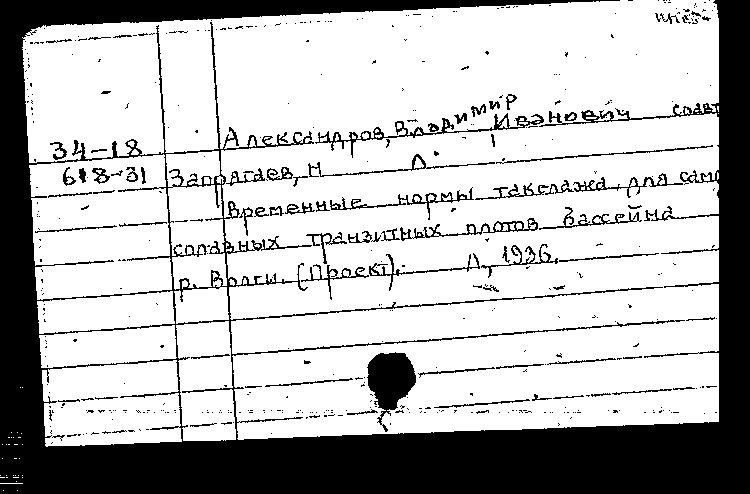 34-18 Александров, Владимир Иванович соавт
618-31 Запрягаев, М Л.
Временные нормы такелажа для само
сплавных транзитных плотов бассейна
р. Волги. (Проект). Л, 1936.